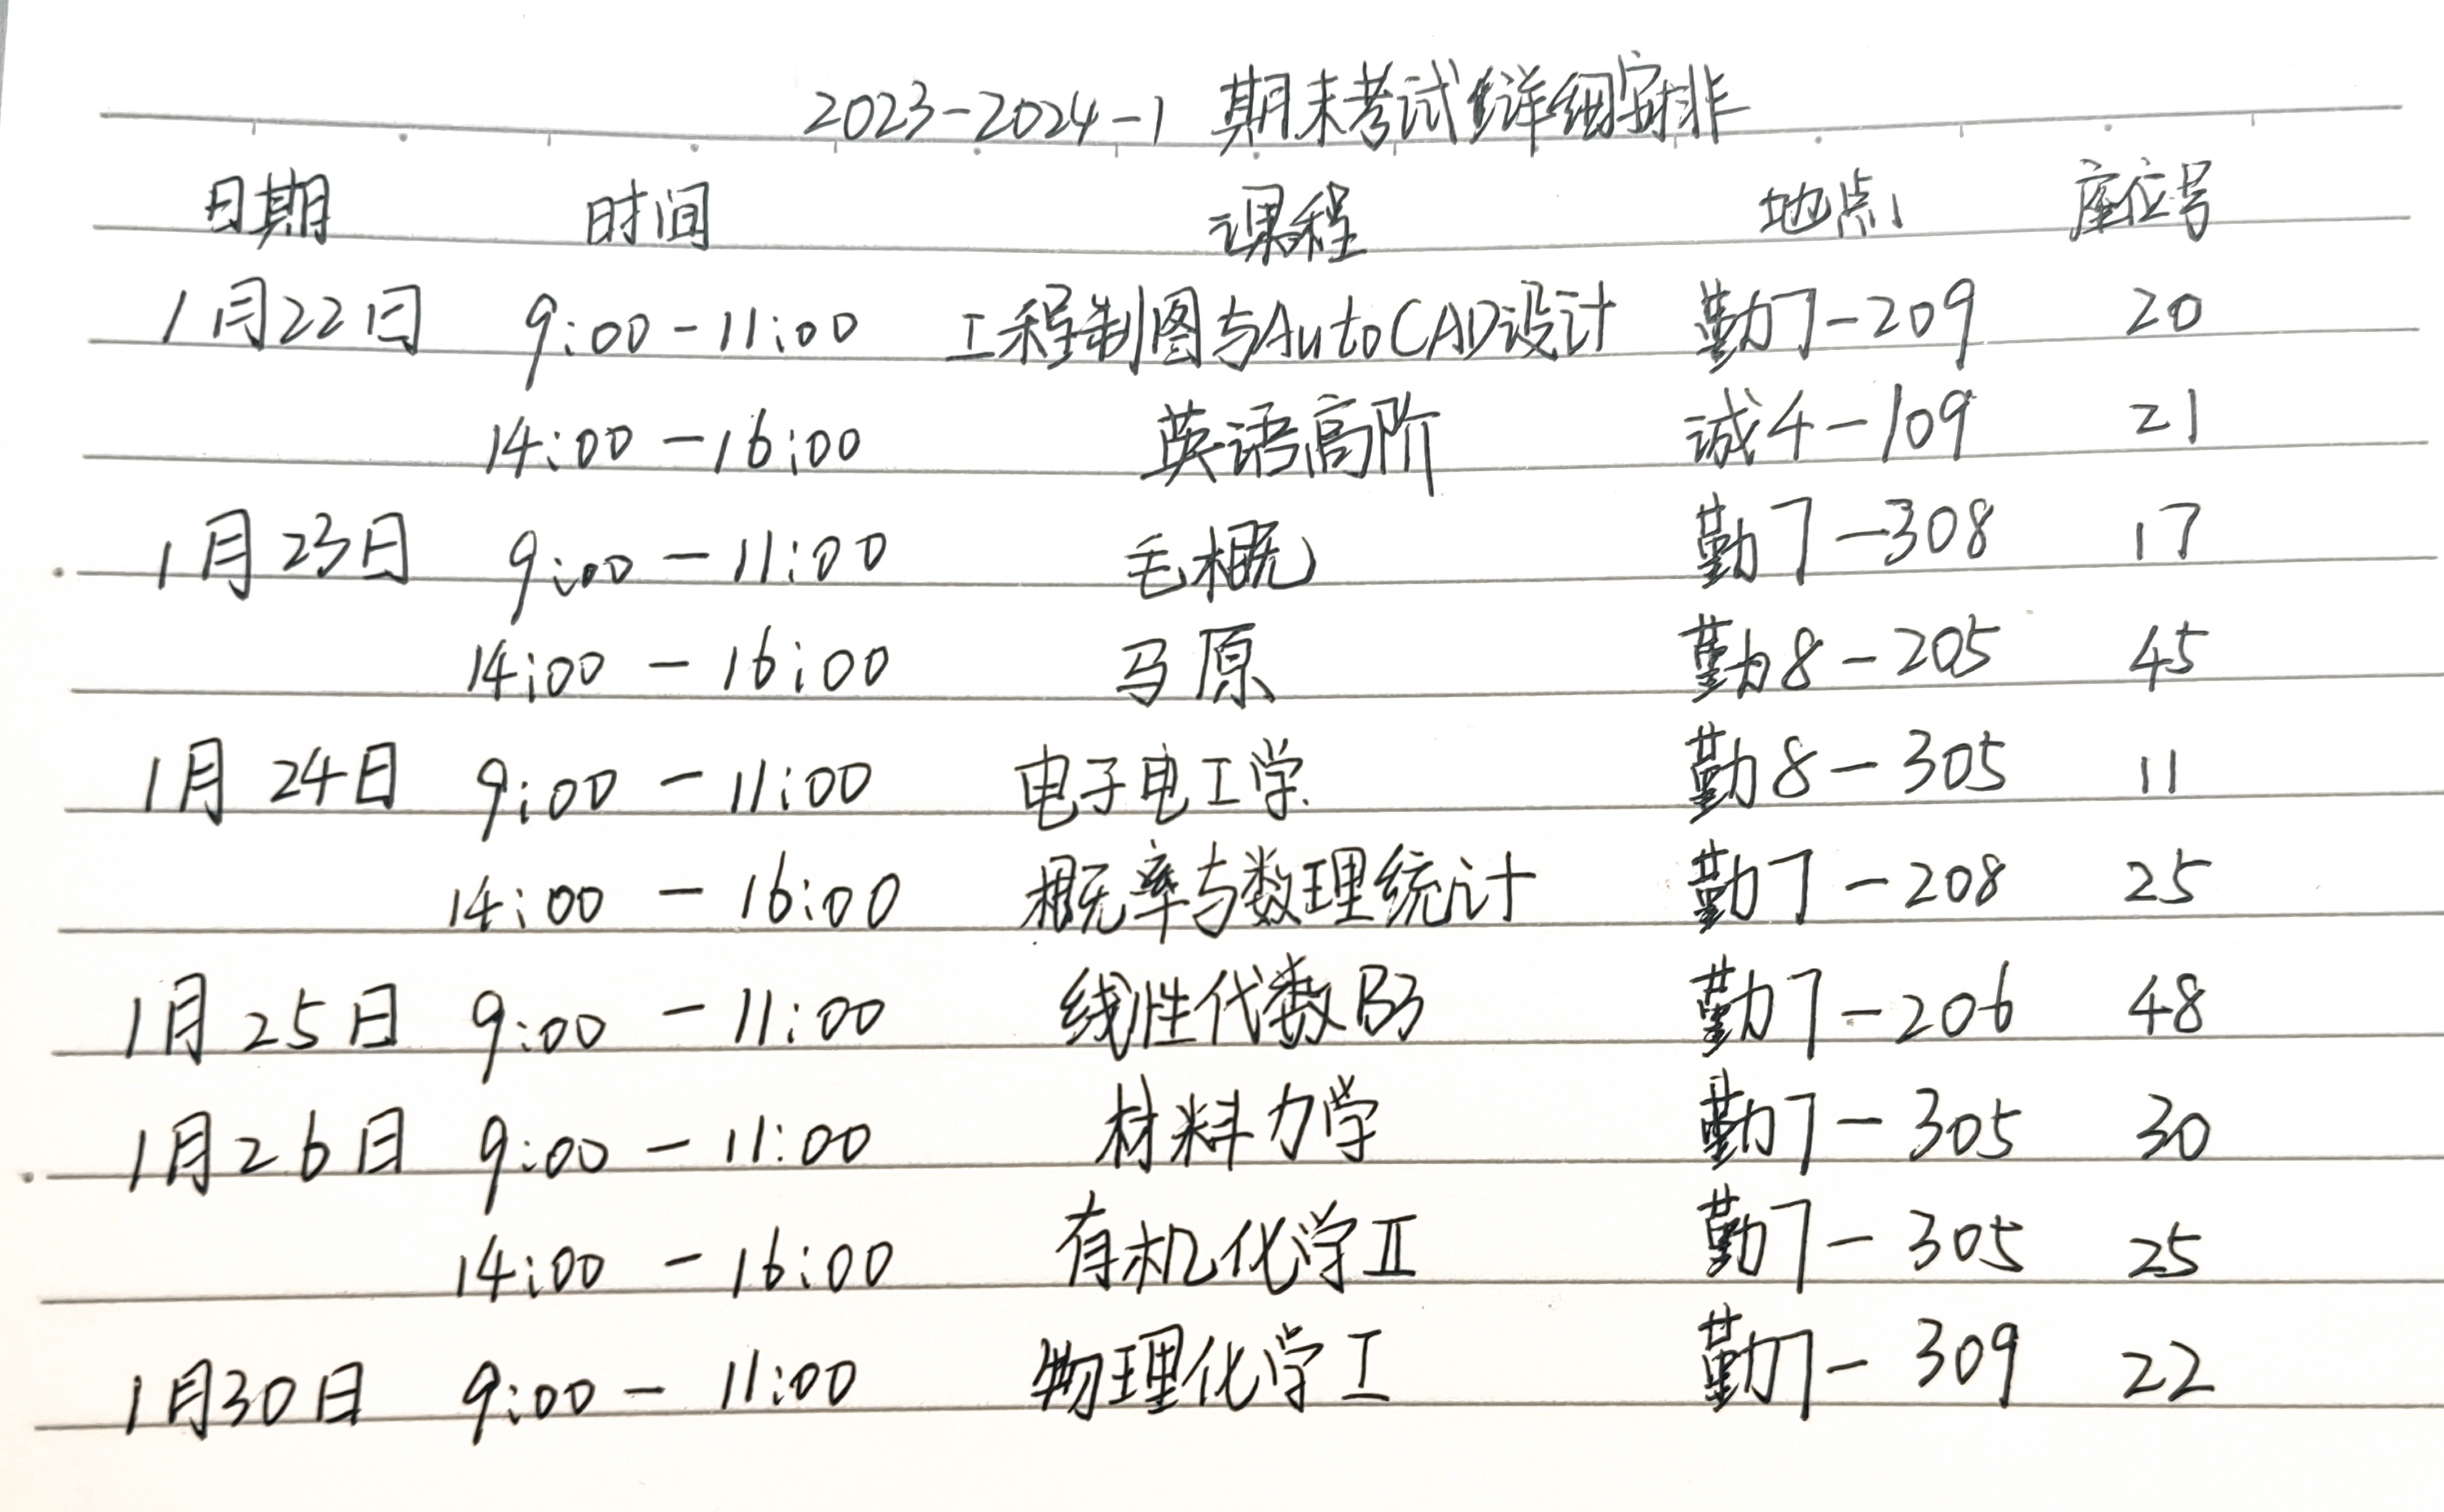 2023-2024-1 期末考试详细安排
日期 时间 课程 地点 座位号
1月22日 9:00-11:00 工程制图与AutoCAD设计 勤7-209 20
14:00-16:00 英语高阶 诚4-109 21
1月23日 9:00-11:00 毛概 勤7-308 17
14:00-16:00 马原 勤8-205 45
1月24日 9:00-11:00 电子电工学 勤8-305 11
14:00-16:00 概率与数理统计 勤7-208 25
1月25日 9:00-11:00 线性代数B3 勤7-206 48
1月26日 9:00-11:00 材料力学 勤7-305 30
14:00-16:00 有机化学Ⅱ 勤7-305 25
1月30日 9:00-11:00 物理化学Ⅰ 勤7-309 22